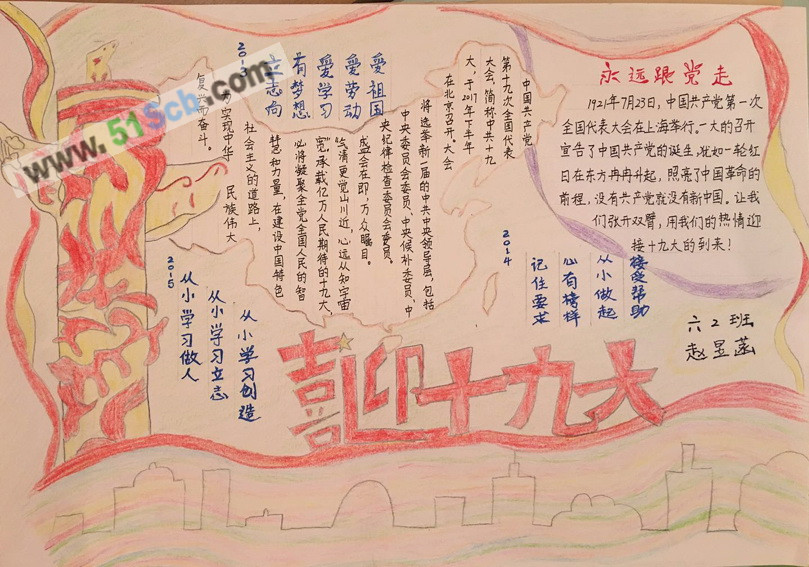 永远跟党走
1921年7月23日,中国共产党第一次
全国代表大会在上海举行。一大的召开
宣告了中国共产党的诞生,犹如一轮红
日在东方冉冉升起,照亮了中国革命的
前程,没有共产党就没有新中国。让我
们张开双臂,用我们的热情迎
接十九大的到来!
中国共产党
第十九次全国代表
大会,简称中共十九
大,于2017年下半年
在北京召开。大会
将选举新一届的中共中央领导层,包括
中央委员会委员、中央候补委员、中
央纪律检查委员会委员。
盛会在即,万众瞩目。
“气清更觉山川近,心远从知宇宙
宽。”承载亿万人民期待的十九大,
必将凝聚全党全国人民的智
慧和力量,在建设中国特色
社会主义的道路上,
为实现中华 民族伟大
复兴而奋斗。
2013
愛祖国
愛劳动
愛学习
有梦想
立志向
2014
接受帮助
从小做起
心有榜样
记住要求
2015
从小学习创造
从小学习立志
从小学习做人
六2班
赵昱菡
喜迎十九大
www.51Scb.com